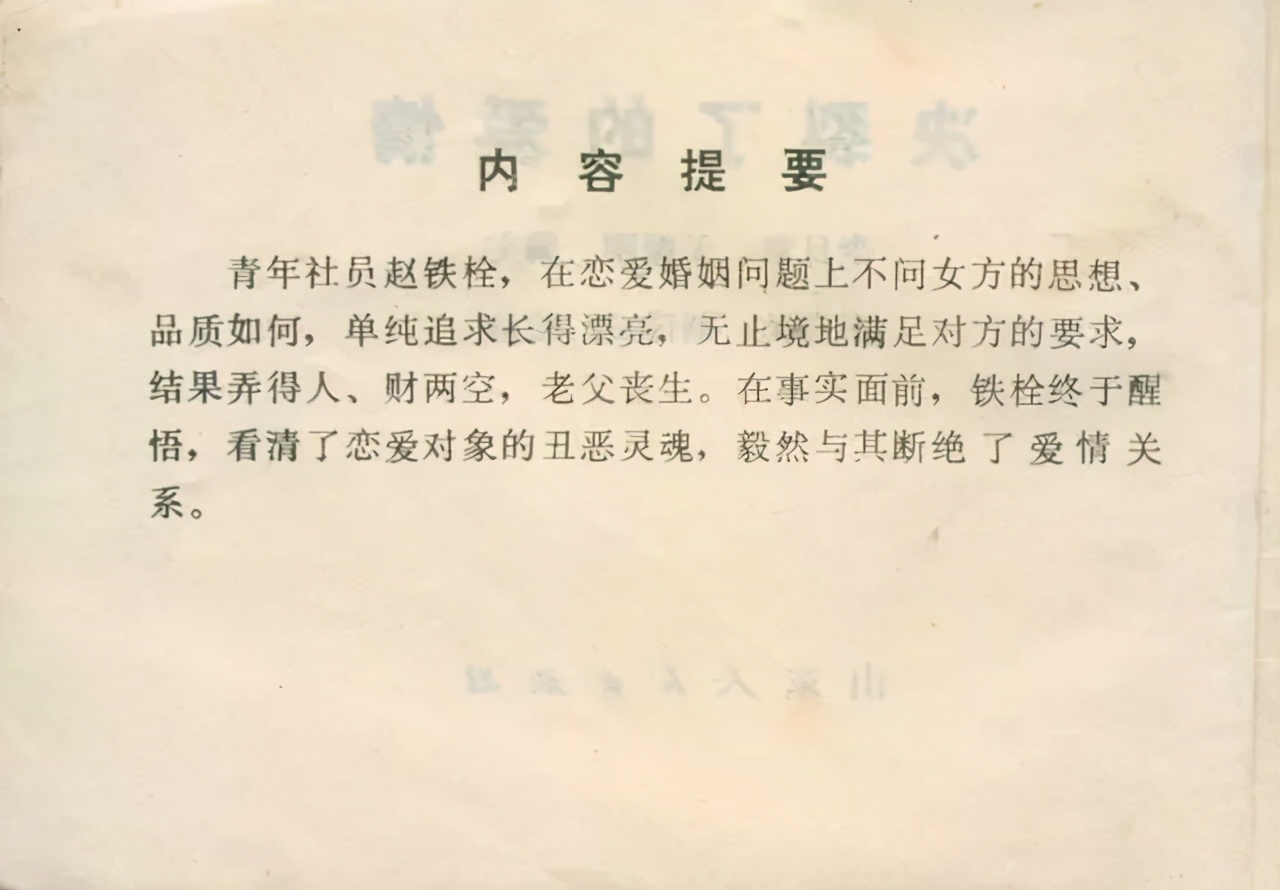 决裂了的爱情
内容提要
青年社员赵铁栓，在恋爱婚姻问题上不问女方的思想、
品质如何，单纯追求长得漂亮，无止境地满足对方的要求，
结果弄得人、财两空，老父丧生。在事实面前，铁栓终于醒
悟，看清了恋爱对象的丑恶灵魂，毅然与其断绝了爱情关
系。
山东人民出版社